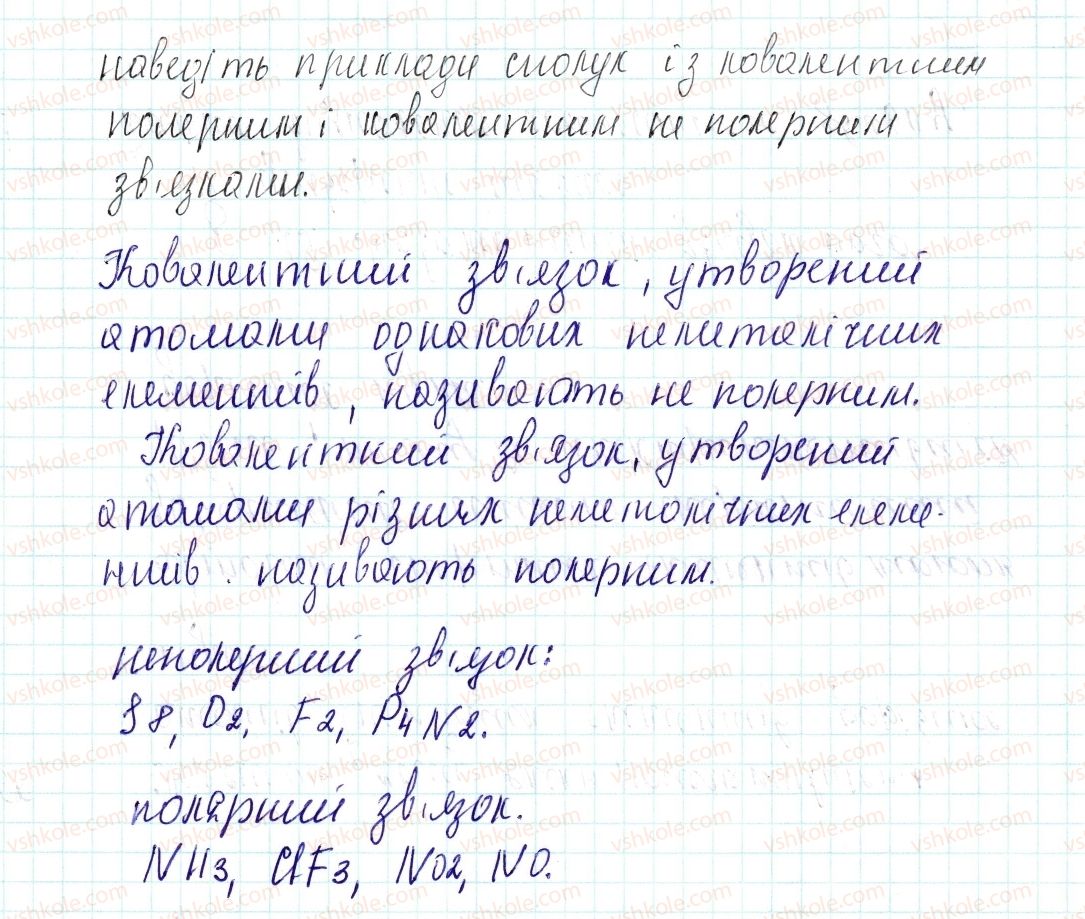 наведіть приклади сполук із ковалентним
полерним і ковалентним не полерними
зв'язками.
Ковалентний зв'язок, утворений
атомами однакових неметалічних
елементів, називають не полерним.
Ковалентний зв'язок, утворений
атомами різних неметалічних елеме-
нтів називають полерним.
неполерний зв'язок:
S8, O2, F2, P4 N2.
полярний зв'язок.
NH3, ClF3, NO2, NO.